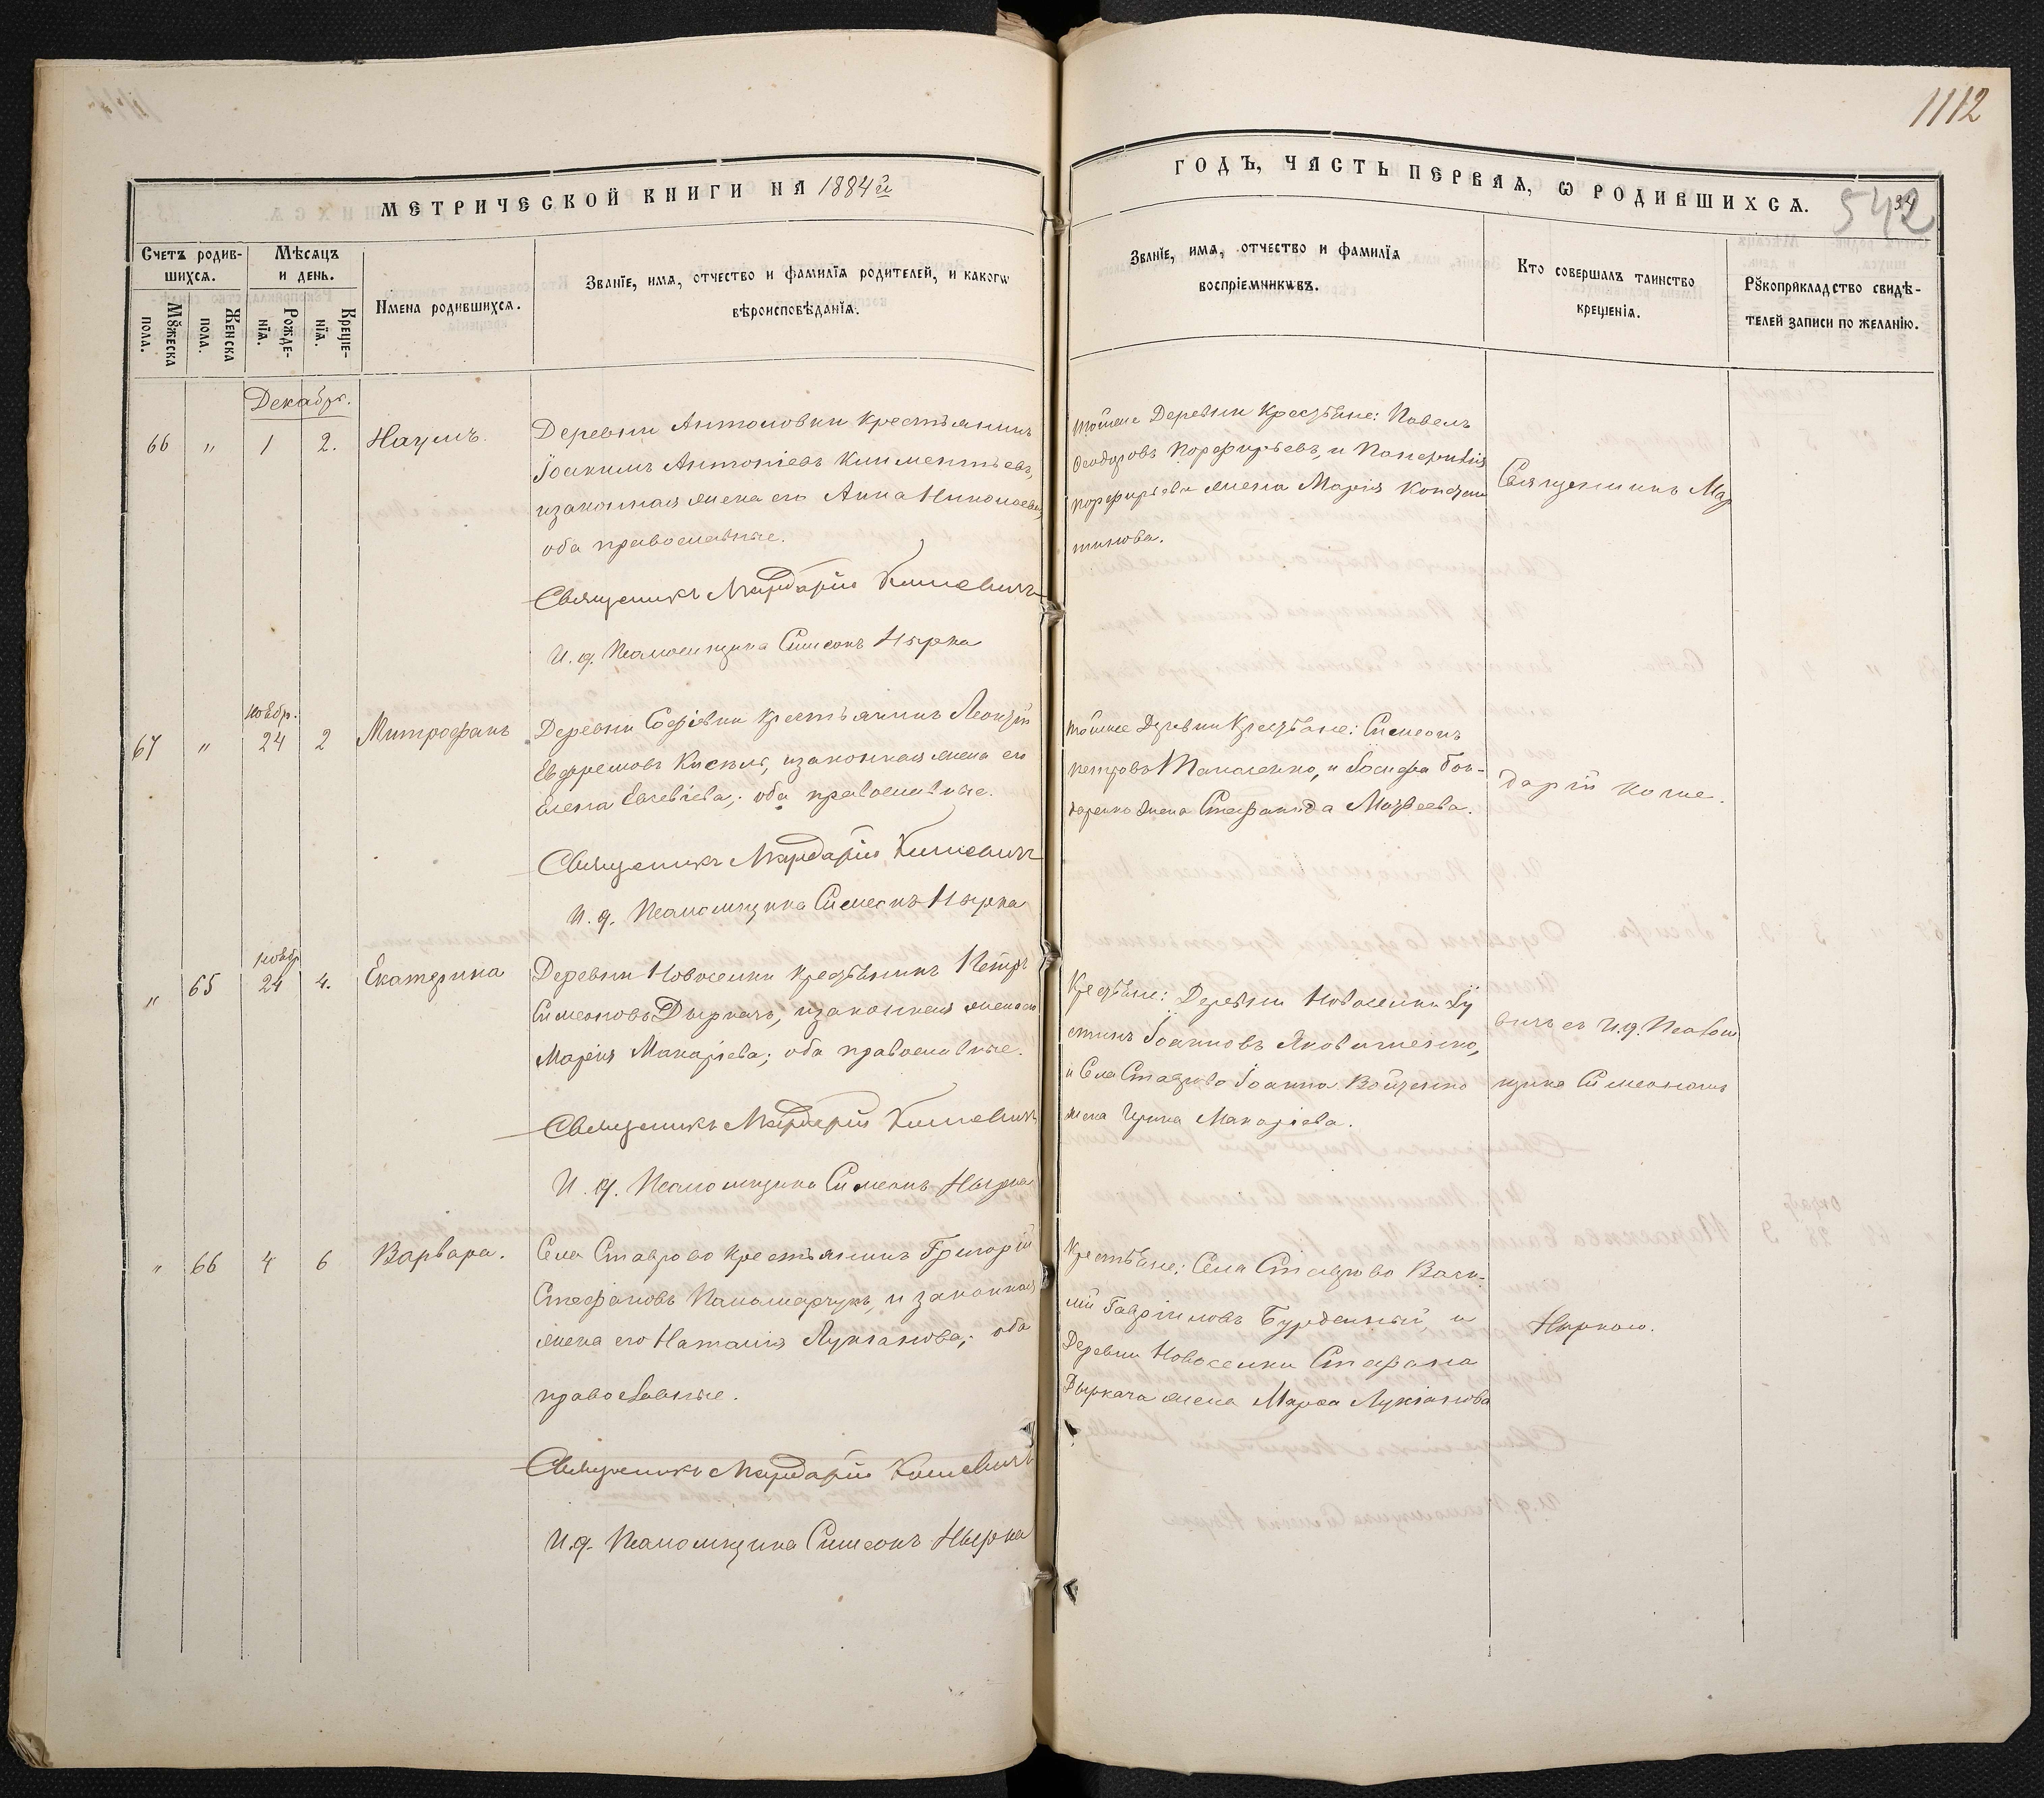 1112
МЕТРИЧЕСКОЙ КНИГИ НА 1884й
ГОДЪ, ЧАСТЬ ПЕРВАЯ, Ѡ РОДИВШИХСѦ.
542
34
Счетъ родив-
шихсѧ.
Мѣсяцъ
и день.
Мꙋжеска
пола.
Женска
пола.
Рожде-
нїѧ.
Креще-
нїѧ.
Имена родившихсѧ.
Званїе, имѧ, отчество и фамилїѧ родителей, и какогѡ
вѣроисповѣданїѧ.
Званїе, имѧ, отчество и фамилїѧ
воспрїемникѡвъ.
Кто совершалъ таинство
крещенїѧ.
Рꙋкоприкладство свидѣ-
телей записи по желанїю.
Декабрь.
66 " 1 2. Наумъ.
Деревни Антоновки крестьянинъ
Іоакимъ Антоніевъ Климентьевъ,
и законная жена его Анна Николаева,
оба православные.
Священникъ Мардарій Кошевичъ
И. д. Псаломщика Симеонъ Нырка
тойже Деревни Крестьяне: Павелъ
Ѳеодоровъ Порфирьевъ, и
Порфирьева жена Марія Констан
тинова.
Священникъ Мар
Ноябр.
67 " 24 2 Митрофанъ
Деревни Софіевки крестьянинъ Леонтій
Евфремовъ Кисель, и законная жена его
Елена Евсевіева; оба православные.
Священникъ Мардарій Кошевичъ
И. д. Псаломщика Симеонъ Нырка
тойже Деревни Крестьяне: Симеонъ
Петровъ Тапаленко, и Іосифа Бон-
даренко жена Стефанида Матѳеева.
дарій Коше.
Ноябр
" 65 24 4. Екатерина
Деревни Новоселки крестьянинъ Петръ
Симеоновъ Дыркачъ, и законная жена его
Марія Макаріева; оба православные.
Священникъ Мардарій Кошевичъ
И. д. Псаломщика Симеонъ Нырка
Крестьяне: Деревни Новоселки Іу
стинъ Іоанновъ Яковишенко,
и Села Ставрово Іоанна Войтенко
жена Ирина Макаріева.
вичъ съ и.д. Псалом
щика Симеономъ
" 66 4 6 Варвара.
Села Ставрово крестьянинъ Григорій
Стефановъ Паламарчукъ, и законная
жена его Наталія Лукіанова; оба
православные.
Священникъ Мардарій Кошевичъ
И.д. Псаломщика Симеонъ Нырка
Крестьяне: Села Ставрово Васи-
лій Гавріиловъ Бурдейный, и
Деревни Новоселки Стефана
Дыркача жена Марѳа Лукіанова
Ныркою.